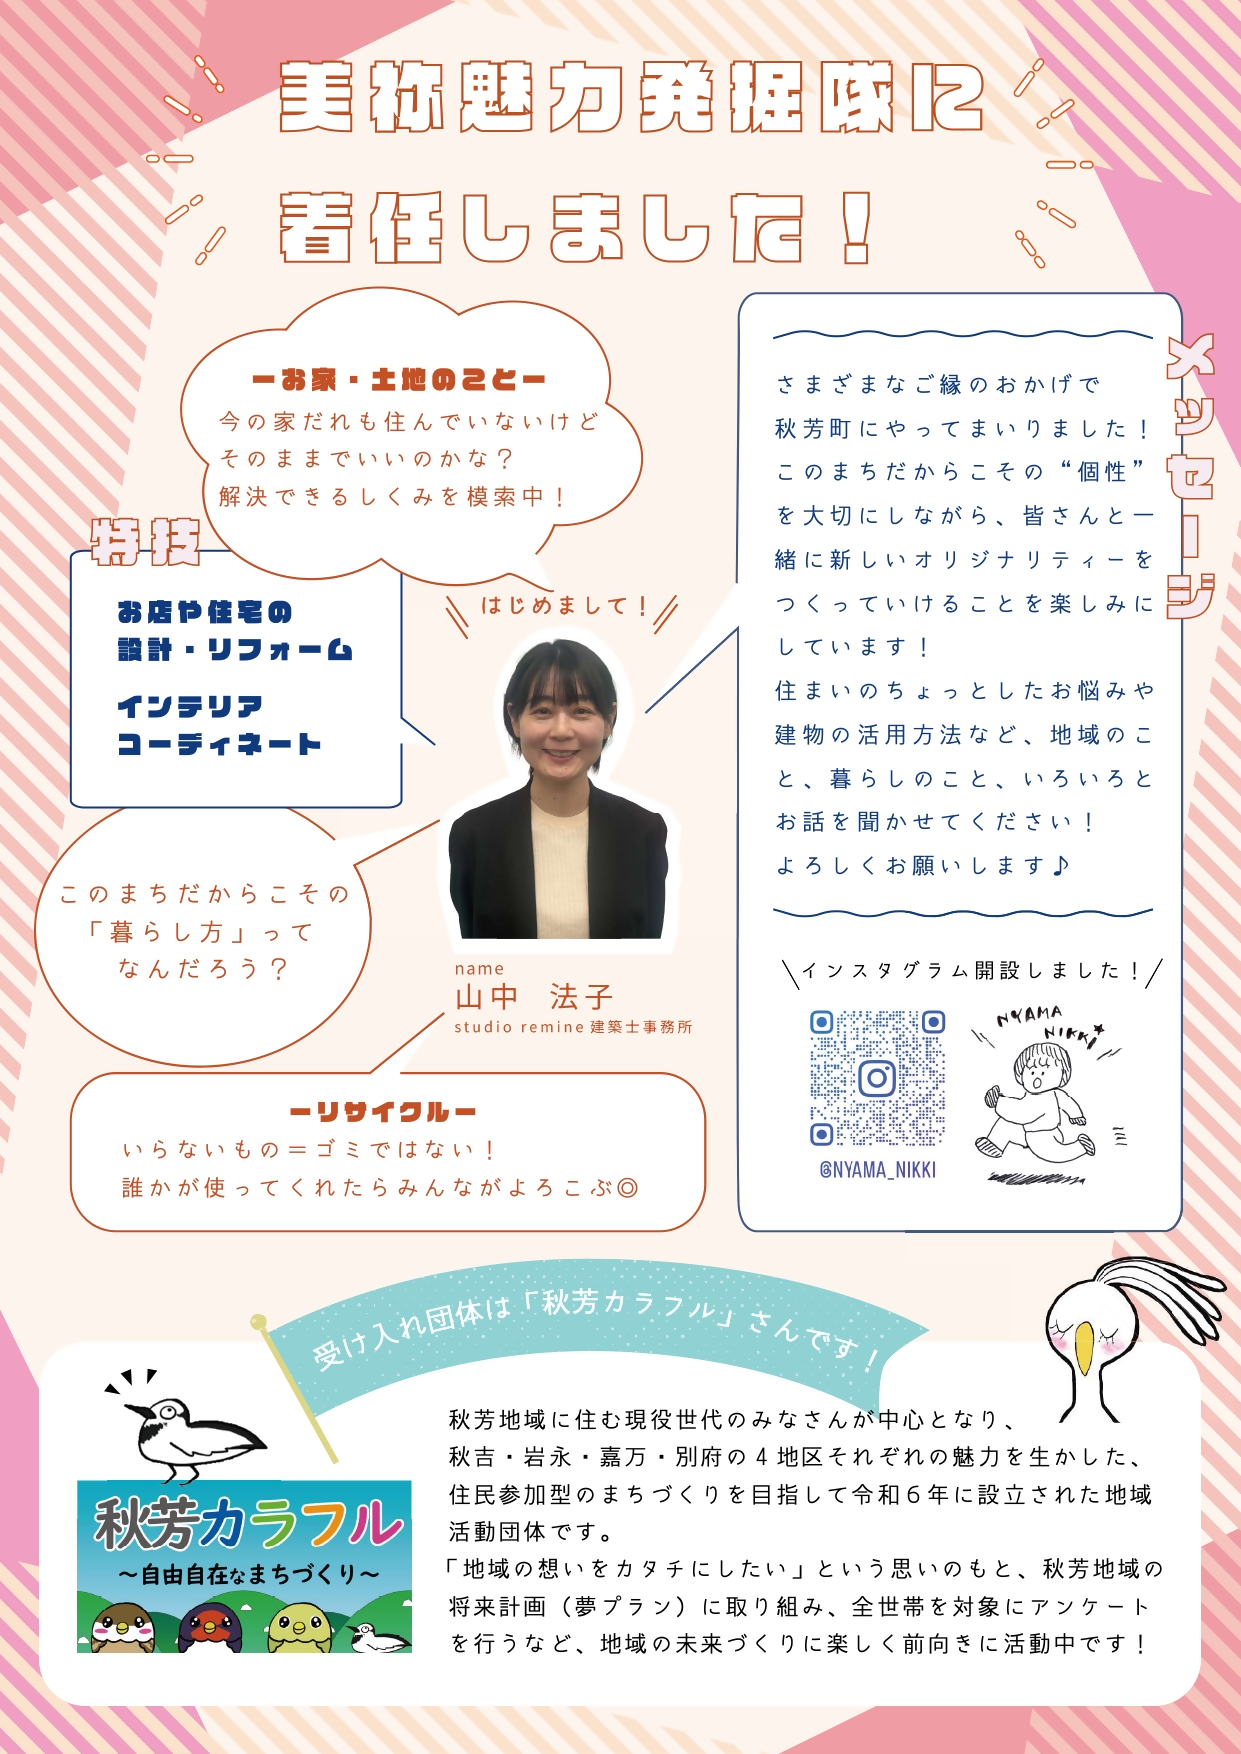 美祢魅力発掘隊に
着任しました！
ーお家・土地のことー
今の家だれも住んでいないけど
そのままでいいのかな？
解決できるしくみを模索中！
特技
お店や住宅の
設計・リフォーム
インテリア
コーディネート
はじめまして！
このまちだからこその
「暮らし方」って
なんだろう？
name
山中　法子
studio remine 建築士事務所
ーリサイクルー
いらないもの＝ゴミではない！
誰かが使ってくれたらみんながよろこぶ◎
メッセージ
さまざまなご縁のおかげで
秋芳町にやってまいりました！
このまちだからこその“個性”
を大切にしながら、皆さんと一
緒に新しいオリジナリティーを
つくっていけることを楽しみに
しています！
住まいのちょっとしたお悩みや
建物の活用方法など、地域のこ
と、暮らしのこと、いろいろと
お話を聞かせてください！
よろしくお願いします♪
\インスタグラム開設しました！/
NYAMA
NIKKI
@NYAMA_NIKKI
受け入れ団体は「秋芳カラフル」さんです！
秋芳カラフル
～自由自在なまちづくり～
秋芳地域に住む現役世代のみなさんが中心となり、
秋吉・岩永・嘉万・別府の4地区それぞれの魅力を生かした、
住民参加型のまちづくりを目指して令和６年に設立された地域
活動団体です。
「地域の想いをカタチにしたい」という思いのもと、秋芳地域の
将来計画（夢プラン）に取り組み、全世帯を対象にアンケート
を行うなど、地域の未来づくりに楽しく前向きに活動中です！